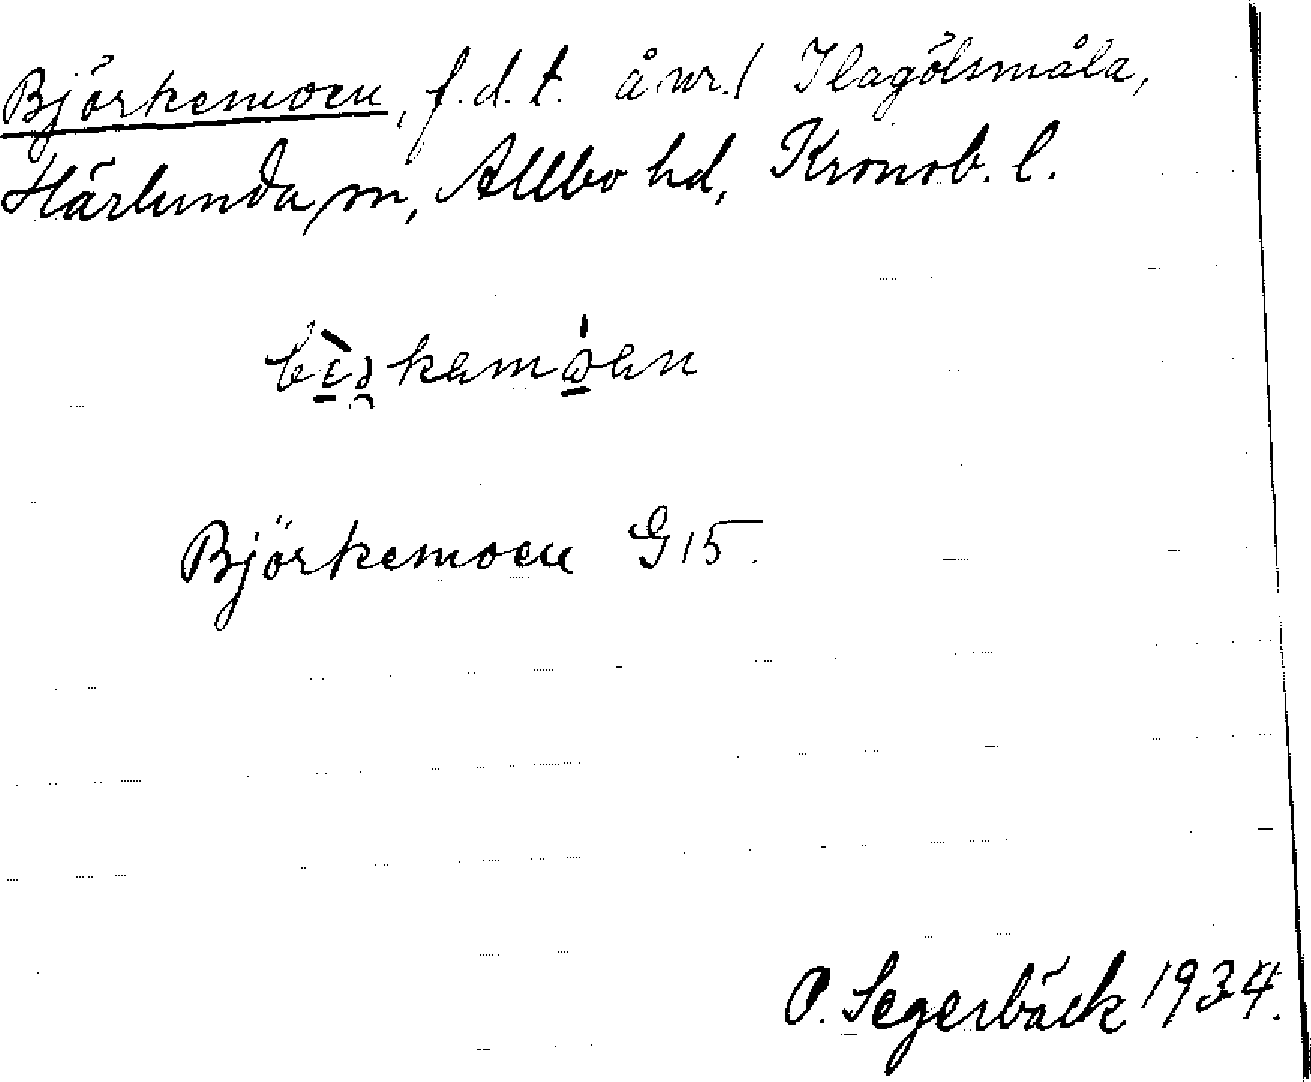 Björkemoen, f.d.t. å nr. 1 Flagölsmåla,
Härlunda sn, Allbo hd, Kronob. l.
Björkemoen G 15.
P. Segerbäck 1934.